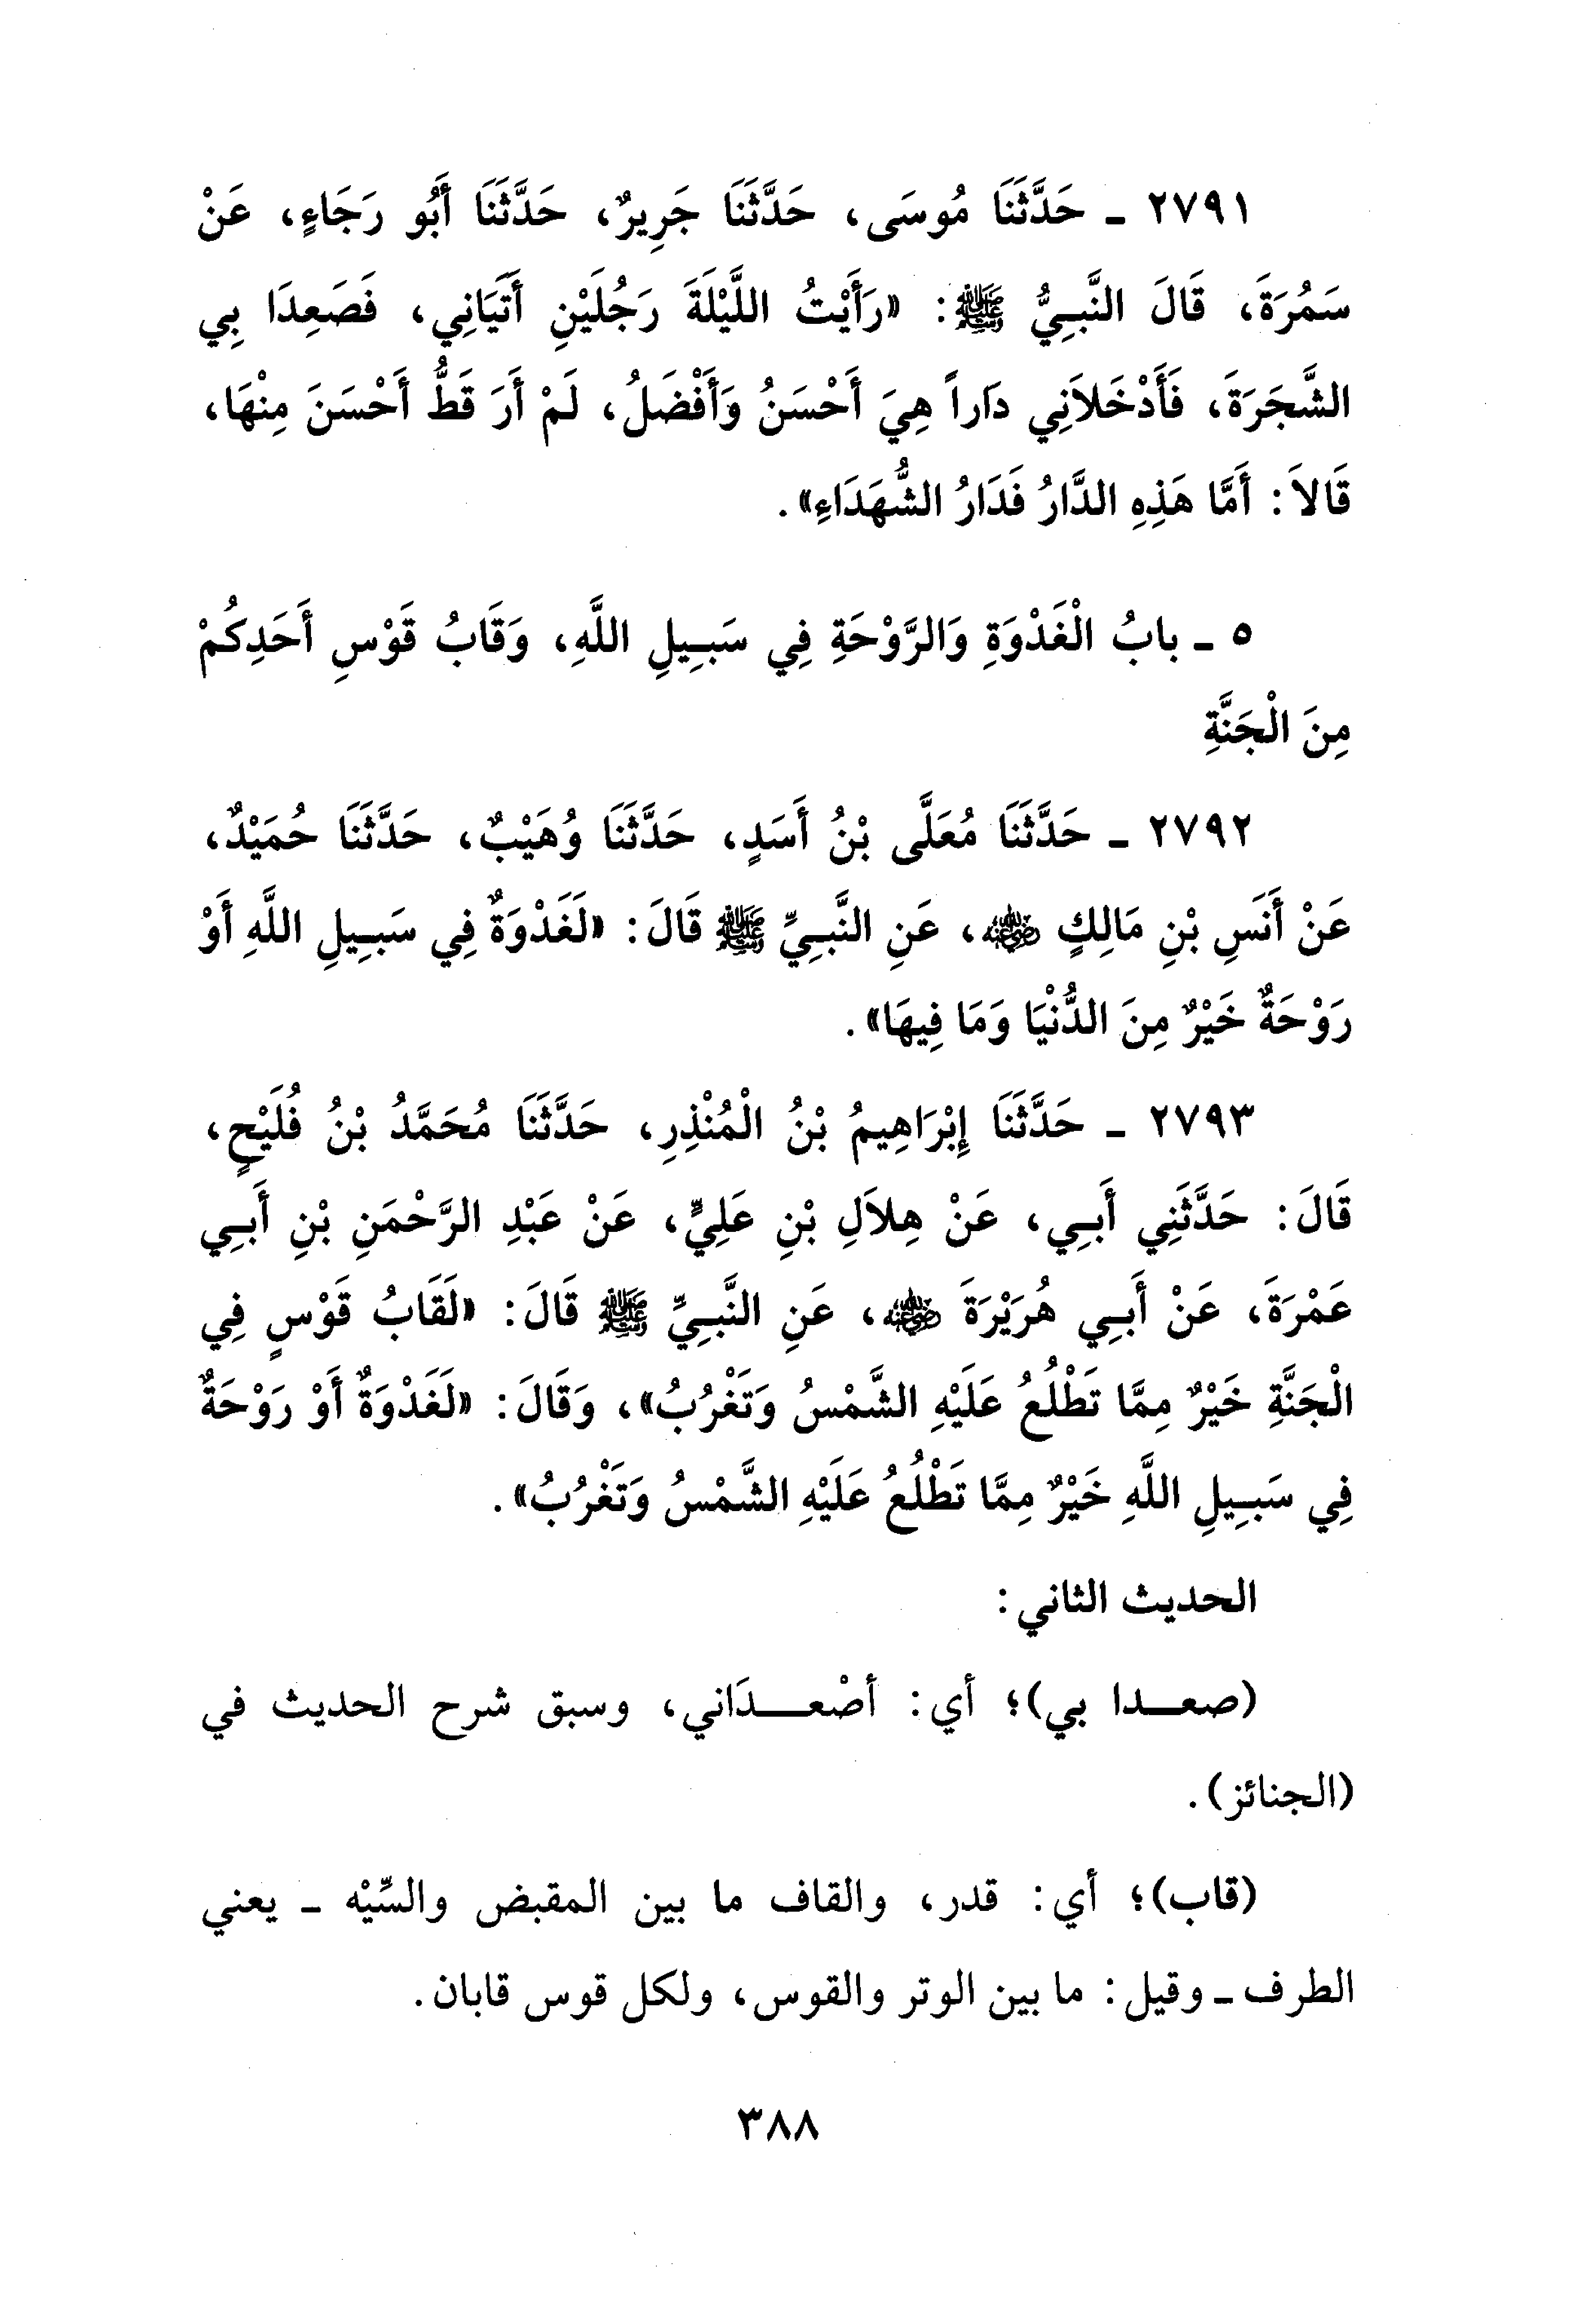 ٢٧٩١ ـ حَدَّثَنَا مُوسَى، حَدَّثَنَا جَرِيرٌ، حَدَّثَنَا أَبُو رَجَاءٍ، عَنْ
سَمُرَةَ، قَالَ النَّبِيُّ ﷺ: «رَأَيْتُ اللَّيْلَةَ رَجُلَيْنِ أَتَيَانِي، فَصَعِدَا بِي
الشَّجَرَةَ، فَأَدْخَلاَنِي دَاراً هِيَ أَحْسَنُ وَأَفْضَلُ، لَمْ أَرَ قَطُّ أَحْسَنَ مِنْهَا،
قَالاَ: أَمَّا هَذِهِ الدَّارُ فَدَارُ الشُّهَدَاءِ».
٥ ـ بابُ الْغَدْوَةِ وَالرَّوْحَةِ فِي سَبِيلِ اللَّهِ، وَقَابُ قَوْسِ أَحَدِكُمْ
مِنَ الْجَنَّةِ
٢٧٩٢ ـ حَدَّثَنَا مُعَلَّى بْنُ أَسَدٍ، حَدَّثَنَا وُهَيْبٌ، حَدَّثَنَا حُمَيْدٌ،
عَنْ أَنَسِ بْنِ مَالِكٍ ﵁، عَنِ النَّبِيِّ ﷺ قَالَ: «لَغَدْوَةٌ فِي سَبِيلِ اللَّهِ أَوْ
رَوْحَةٌ خَيْرٌ مِنَ الدُّنْيَا وَمَا فِيهَا».
٢٧٩٣ ـ حَدَّثَنَا إِبْرَاهِيمُ بْنُ الْمُنْذِرِ، حَدَّثَنَا مُحَمَّدُ بْنُ فُلَيْحٍ،
قَالَ: حَدَّثَنِي أَبِي، عَنْ هِلاَلِ بْنِ عَلِيٍّ، عَنْ عَبْدِ الرَّحْمَنِ بْنِ أَبِي
عَمْرَةَ، عَنْ أَبِي هُرَيْرَةَ ﵁، عَنِ النَّبِيِّ ﷺ قَالَ: «لَقَابُ قَوْسٍ فِي
الْجَنَّةِ خَيْرٌ مِمَّا تَطْلُعُ عَلَيْهِ الشَّمْسُ وَتَغْرُبُ»، وَقَالَ: «لَغَدْوَةٌ أَوْ رَوْحَةٌ
فِي سَبِيلِ اللَّهِ خَيْرٌ مِمَّا تَطْلُعُ عَلَيْهِ الشَّمْسُ وَتَغْرُبُ».
الحديث الثاني:
(صعدا بي)؛ أي: أصْعدَاني، وسبق شرح الحديث في
(الجنائز).
(قاب)؛ أي: قدر، والقاف ما بين المقبض والسِّيْه ـ يعني
الطرف ـ وقيل: ما بين الوتر والقوس، ولكل قوس قابان.
٣٨٨